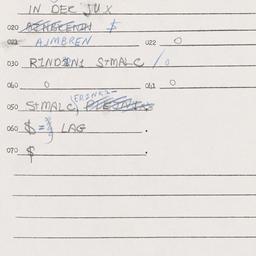 IN DEC JUX
020 $
021 AJMBREN 022 0
030 RINDINI STMALC / 0
040 0 041 0
050 STMALC,
060 $ = LAG .
070 $ .